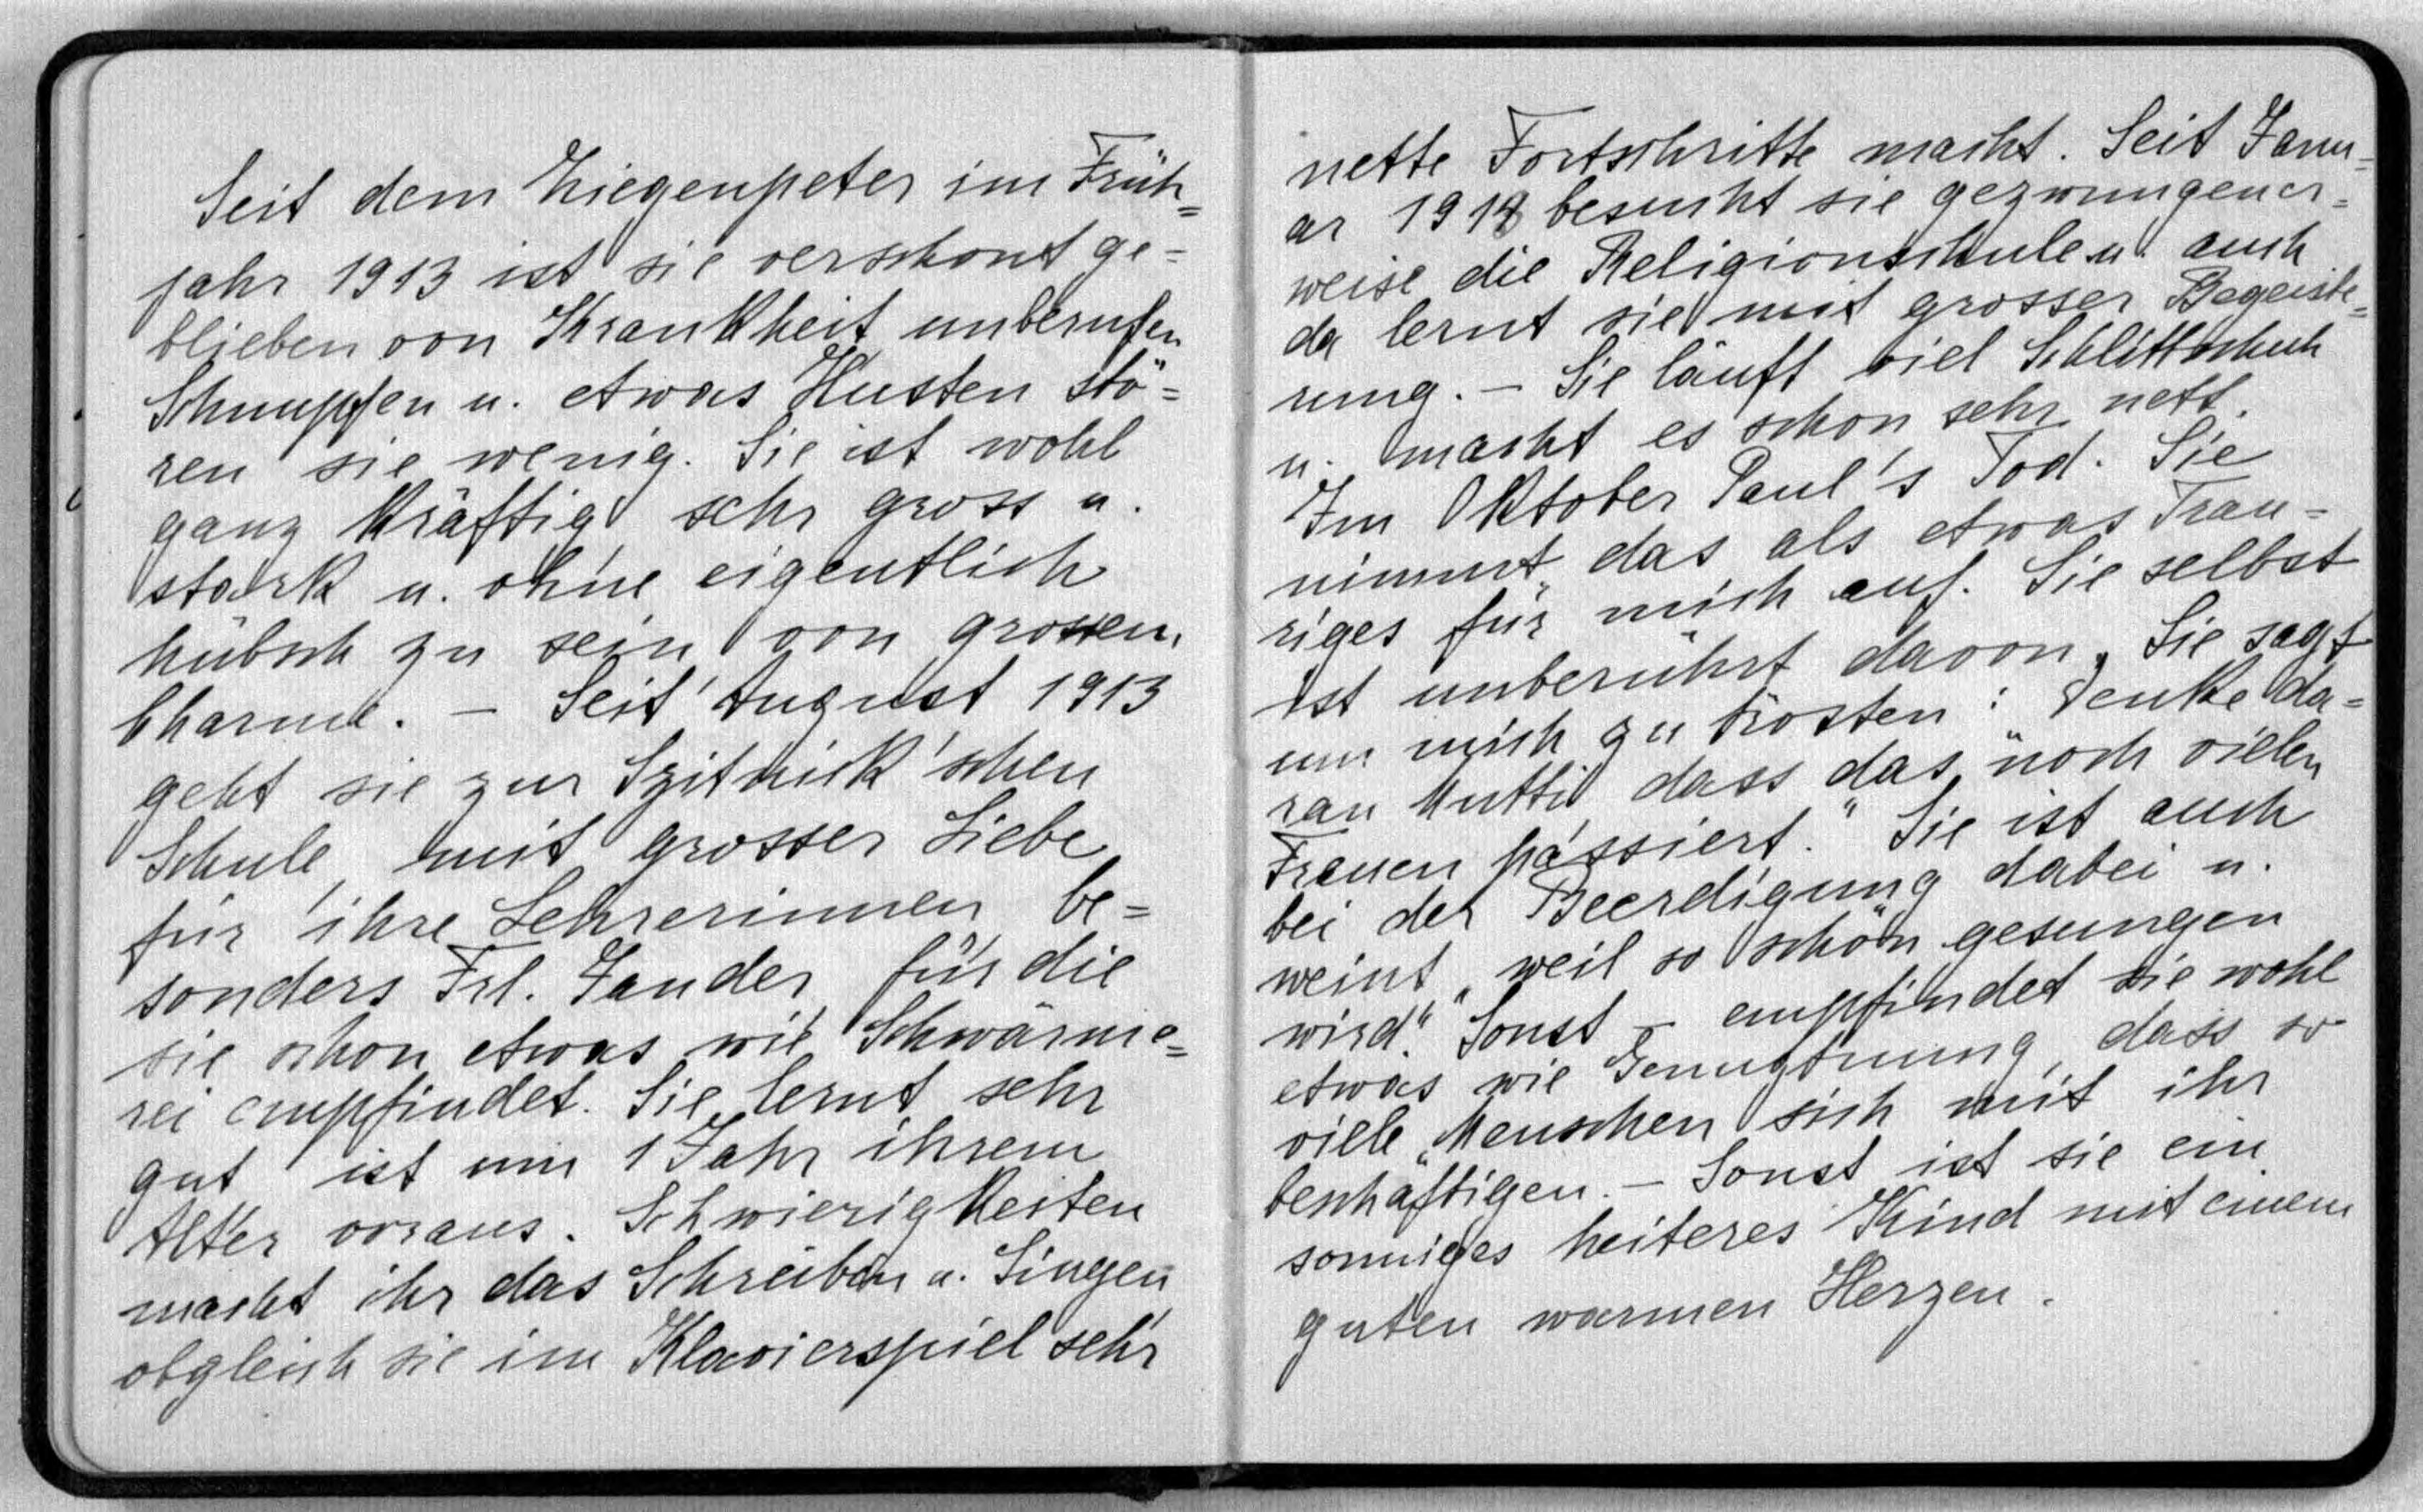 Seit dem Ziegenpeter im Früh=
jahr 1913 ist sie verschont ge=
blieben von Krankheit unberufen
Schnupfen u. etwas Husten stö=
ren sie wenig. Sie ist wohl
ganz kräftig sehr gross u.
stark u. ohne eigentlich
hübsch zu sein von grossem
Charme. – Seit August 1913
geht sie zur Szitnick'schen
Schule mit grosser Liebe
für ihre Lehrerinnen be=
sonders Frl. Zander für die
sie schon etwas wie Schwärme=
rei empfindet. Sie lernt sehr
gut ist um 1 Jahr ihrem
Alter voraus. Schwierigkeiten
macht ihr das Schreiben u. Singen
obgleich sie im Klavierspiel sehr
nette Fortschritte macht. Seit Janu=
ar 1914 besucht sie gezwungener=
weise die Religionsschule u. auch
da lernt sie mit grosser Begeiste=
rung. – Sie läuft viel Schlittschuh
u. macht es schon sehr nett.
Im Oktober Paul's Tod. Sie
nimmt das als etwas Trau=
riges für mich auf. Sie selbst
ist unberührt davon. Sie sagt
um mich zu trösten: "Denke da=
ran Mutti dass das noch vielen
Frauen passiert." Sie ist auch
bei der Beerdigung dabei u.
weint "weil so schön gesungen
wird." Sonst – empfindet sie wohl
etwas wie Genugtuung, dass so
viele Menschen sich mit ihr
beschäftigen. – Sonst ist sie ein
sonniges heiteres Kind mit einem
guten warmen Herzen.